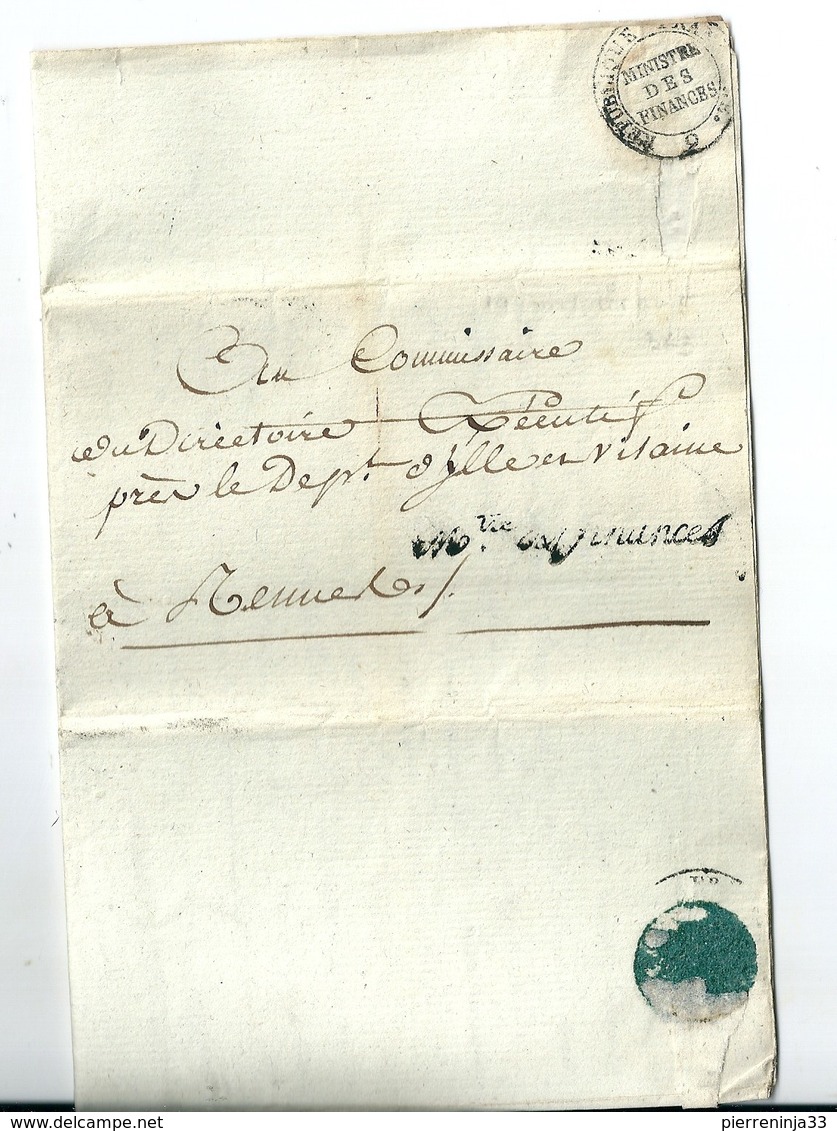 REPUBLIQUE
MINISTRE
DES
FINANCES
2
Au Commissaire
du Directoire Exécutif
près le Dept. d'Ille et Vilaine
M.tre des finances
à Rennes
pierreninja33